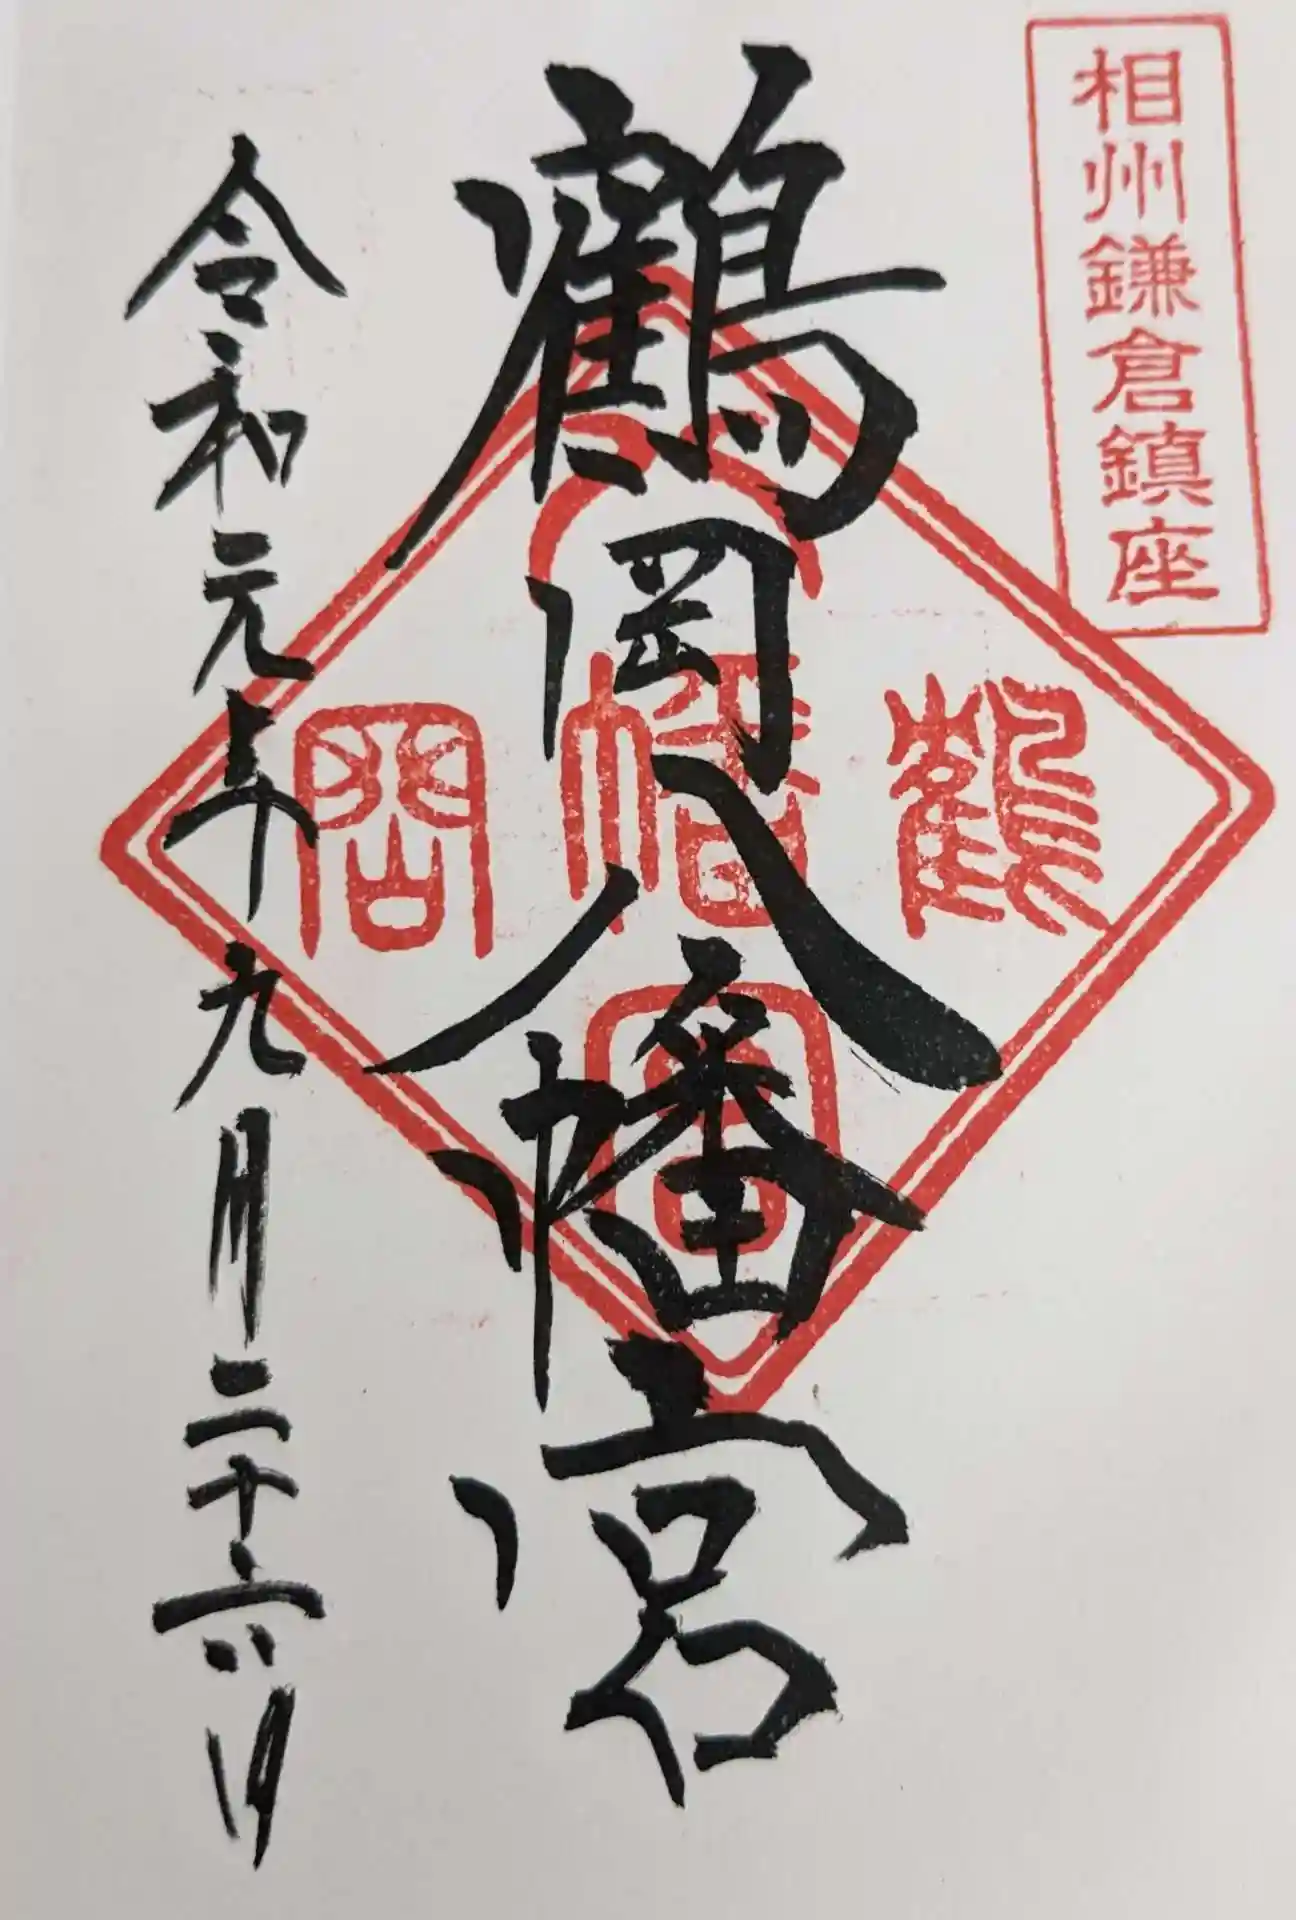 相州鎌倉鎮座
鶴岡八幡宮
鶴
幡
岡
宮
令和元年九月二十六日